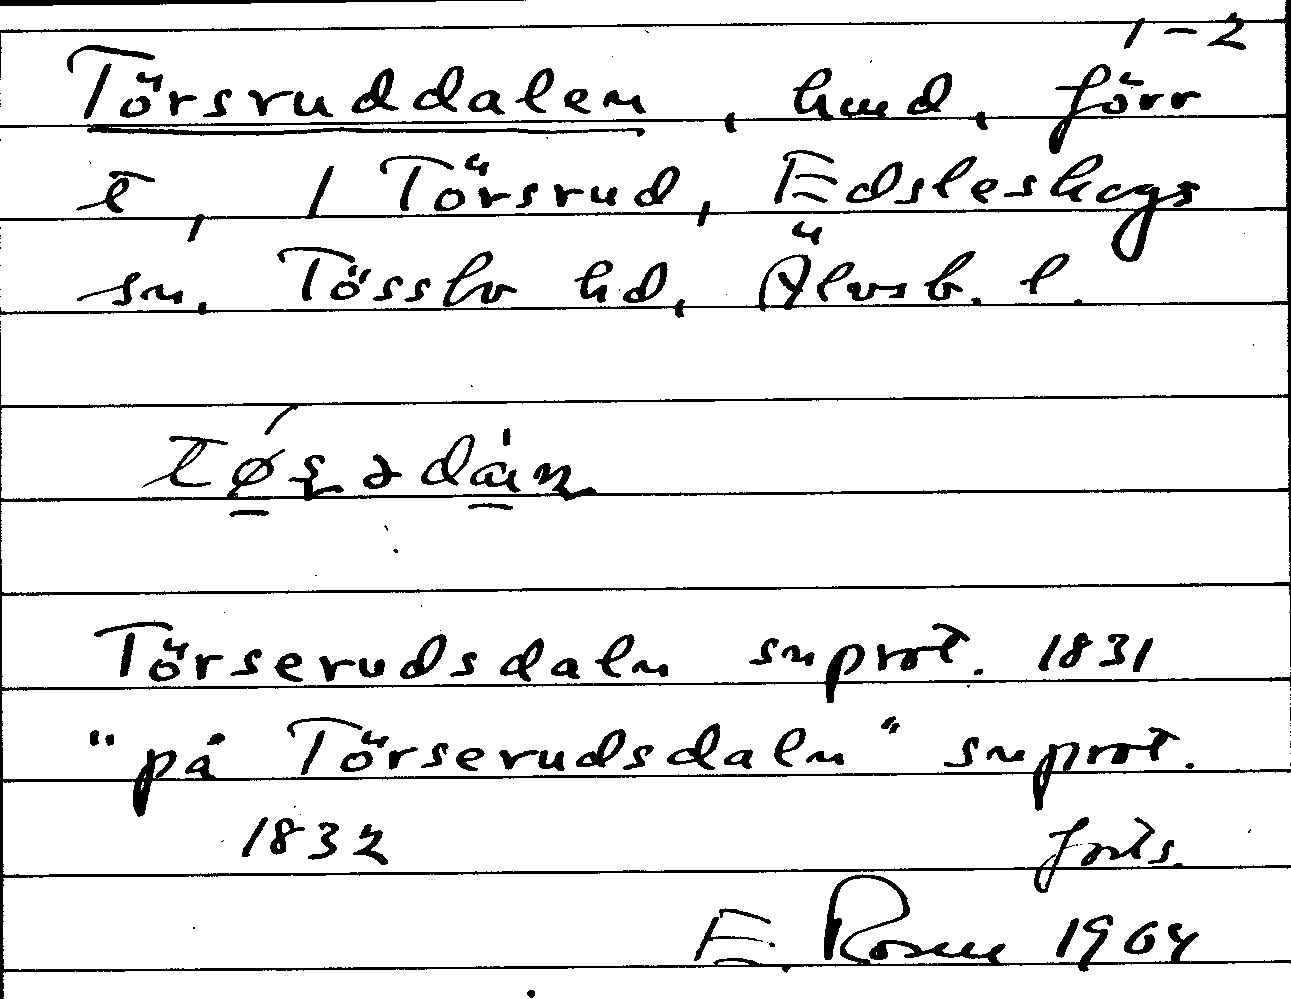 1-2
Törsruddalen, hmd, förr
t, 1 Törsrud, Edsleskogs
sn. Tössbo hd, Älvsb. l.
Törserudsdaln snprot. 1831
"på Törserudsdaln" snprot.
1832 forts.
E. Rosen 1964